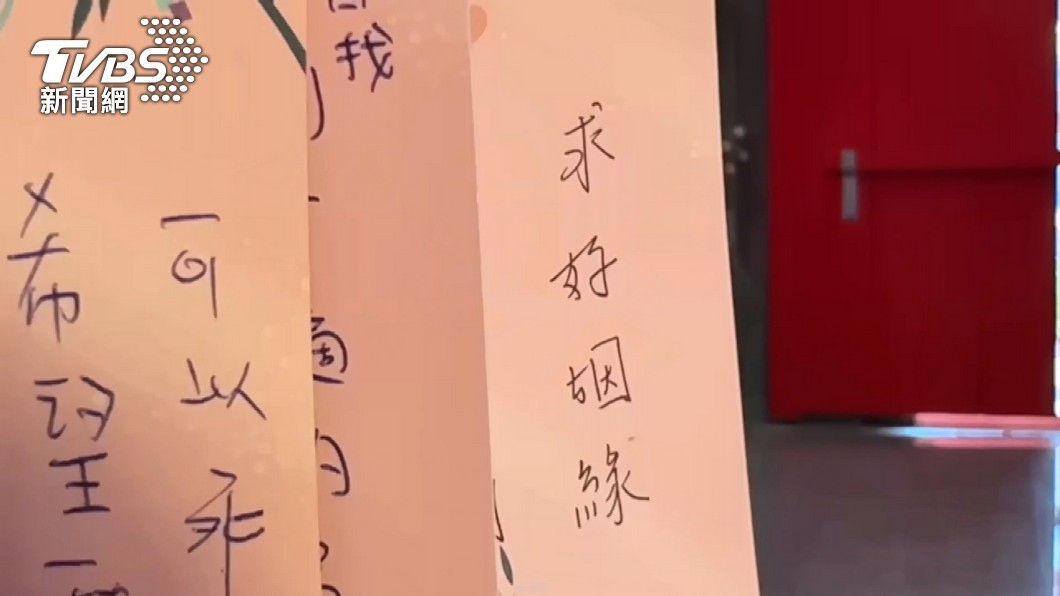 TVBS
新聞網
找
求好姻緣
可以乖
希望一